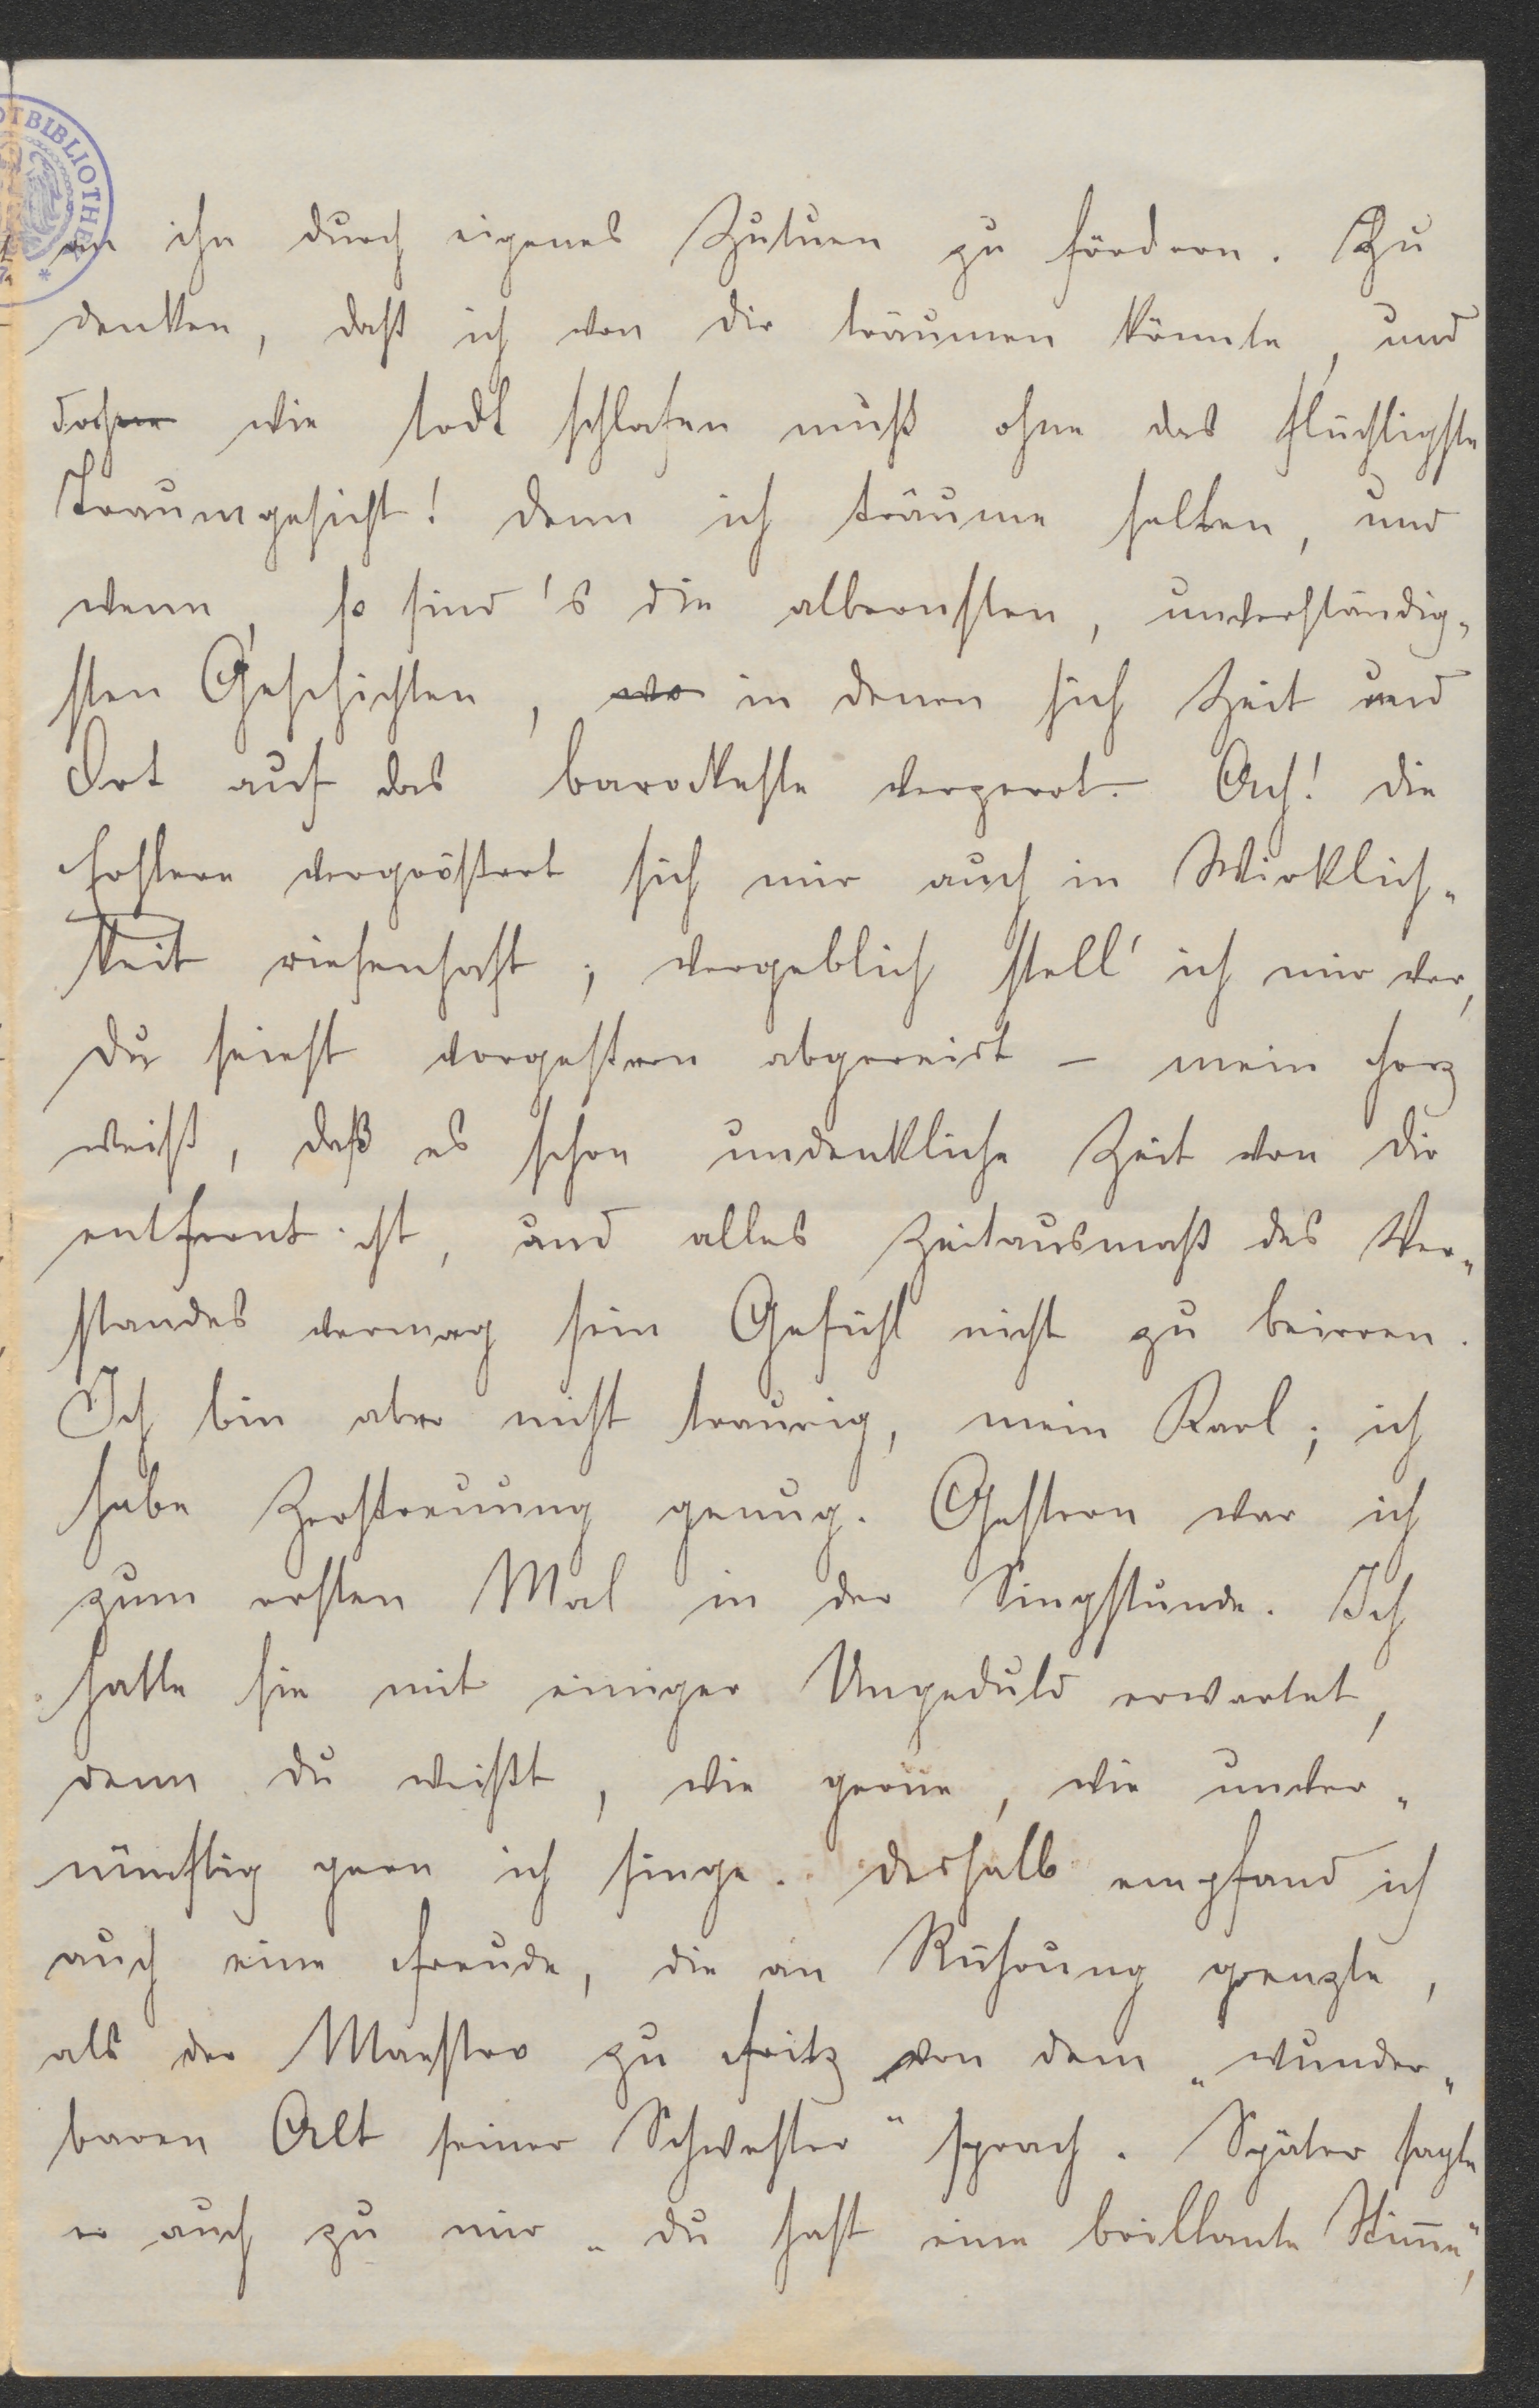 OTBIBLIOTHEK *
um ihn durch eigenes Zutuen zu fördern. Zu
denken, daß ich von dir träumen könnte, und
doch wie todt schlafen muß ohne das flüchtigste
Traumgesicht! denn ich träume selten, und
wenn, so sind's die albernsten, unverständig-
sten Geschichten, wo in denen sich Zeit und
Ort auf das barockeste verzerrt. Ach! die
Erstere vergrößert sich mir auch in Wirklich-
keit riesenhaft; vergeblich stell' ich mir vor,
du seiest vorgestern abgereist – mein Herz
weiß, daß es schon undenkliche Zeit von dir
entfernt ist, und alles Zeitausmaß des Ver-
standes vermag sein Gefühl nicht zu beirren.
Ich bin aber nicht traurig, mein Karl; ich
habe Zerstreuung genug. Gestern war ich
zum ersten Mal in der Singstunde. Ich
hatte sie mit einiger Ungeduld erwartet,
denn du weißt, wie gerne, wie unver-
nünftig gern ich singe. deshalb empfand ich
auch eine Freude, die an Rührung grenzte,
als der Maestro zu Fritz von dem „wunder-
baren Alt seiner Schwester" sprach. Später sagte
er auch zu mir „du hast eine brillante Stimme",